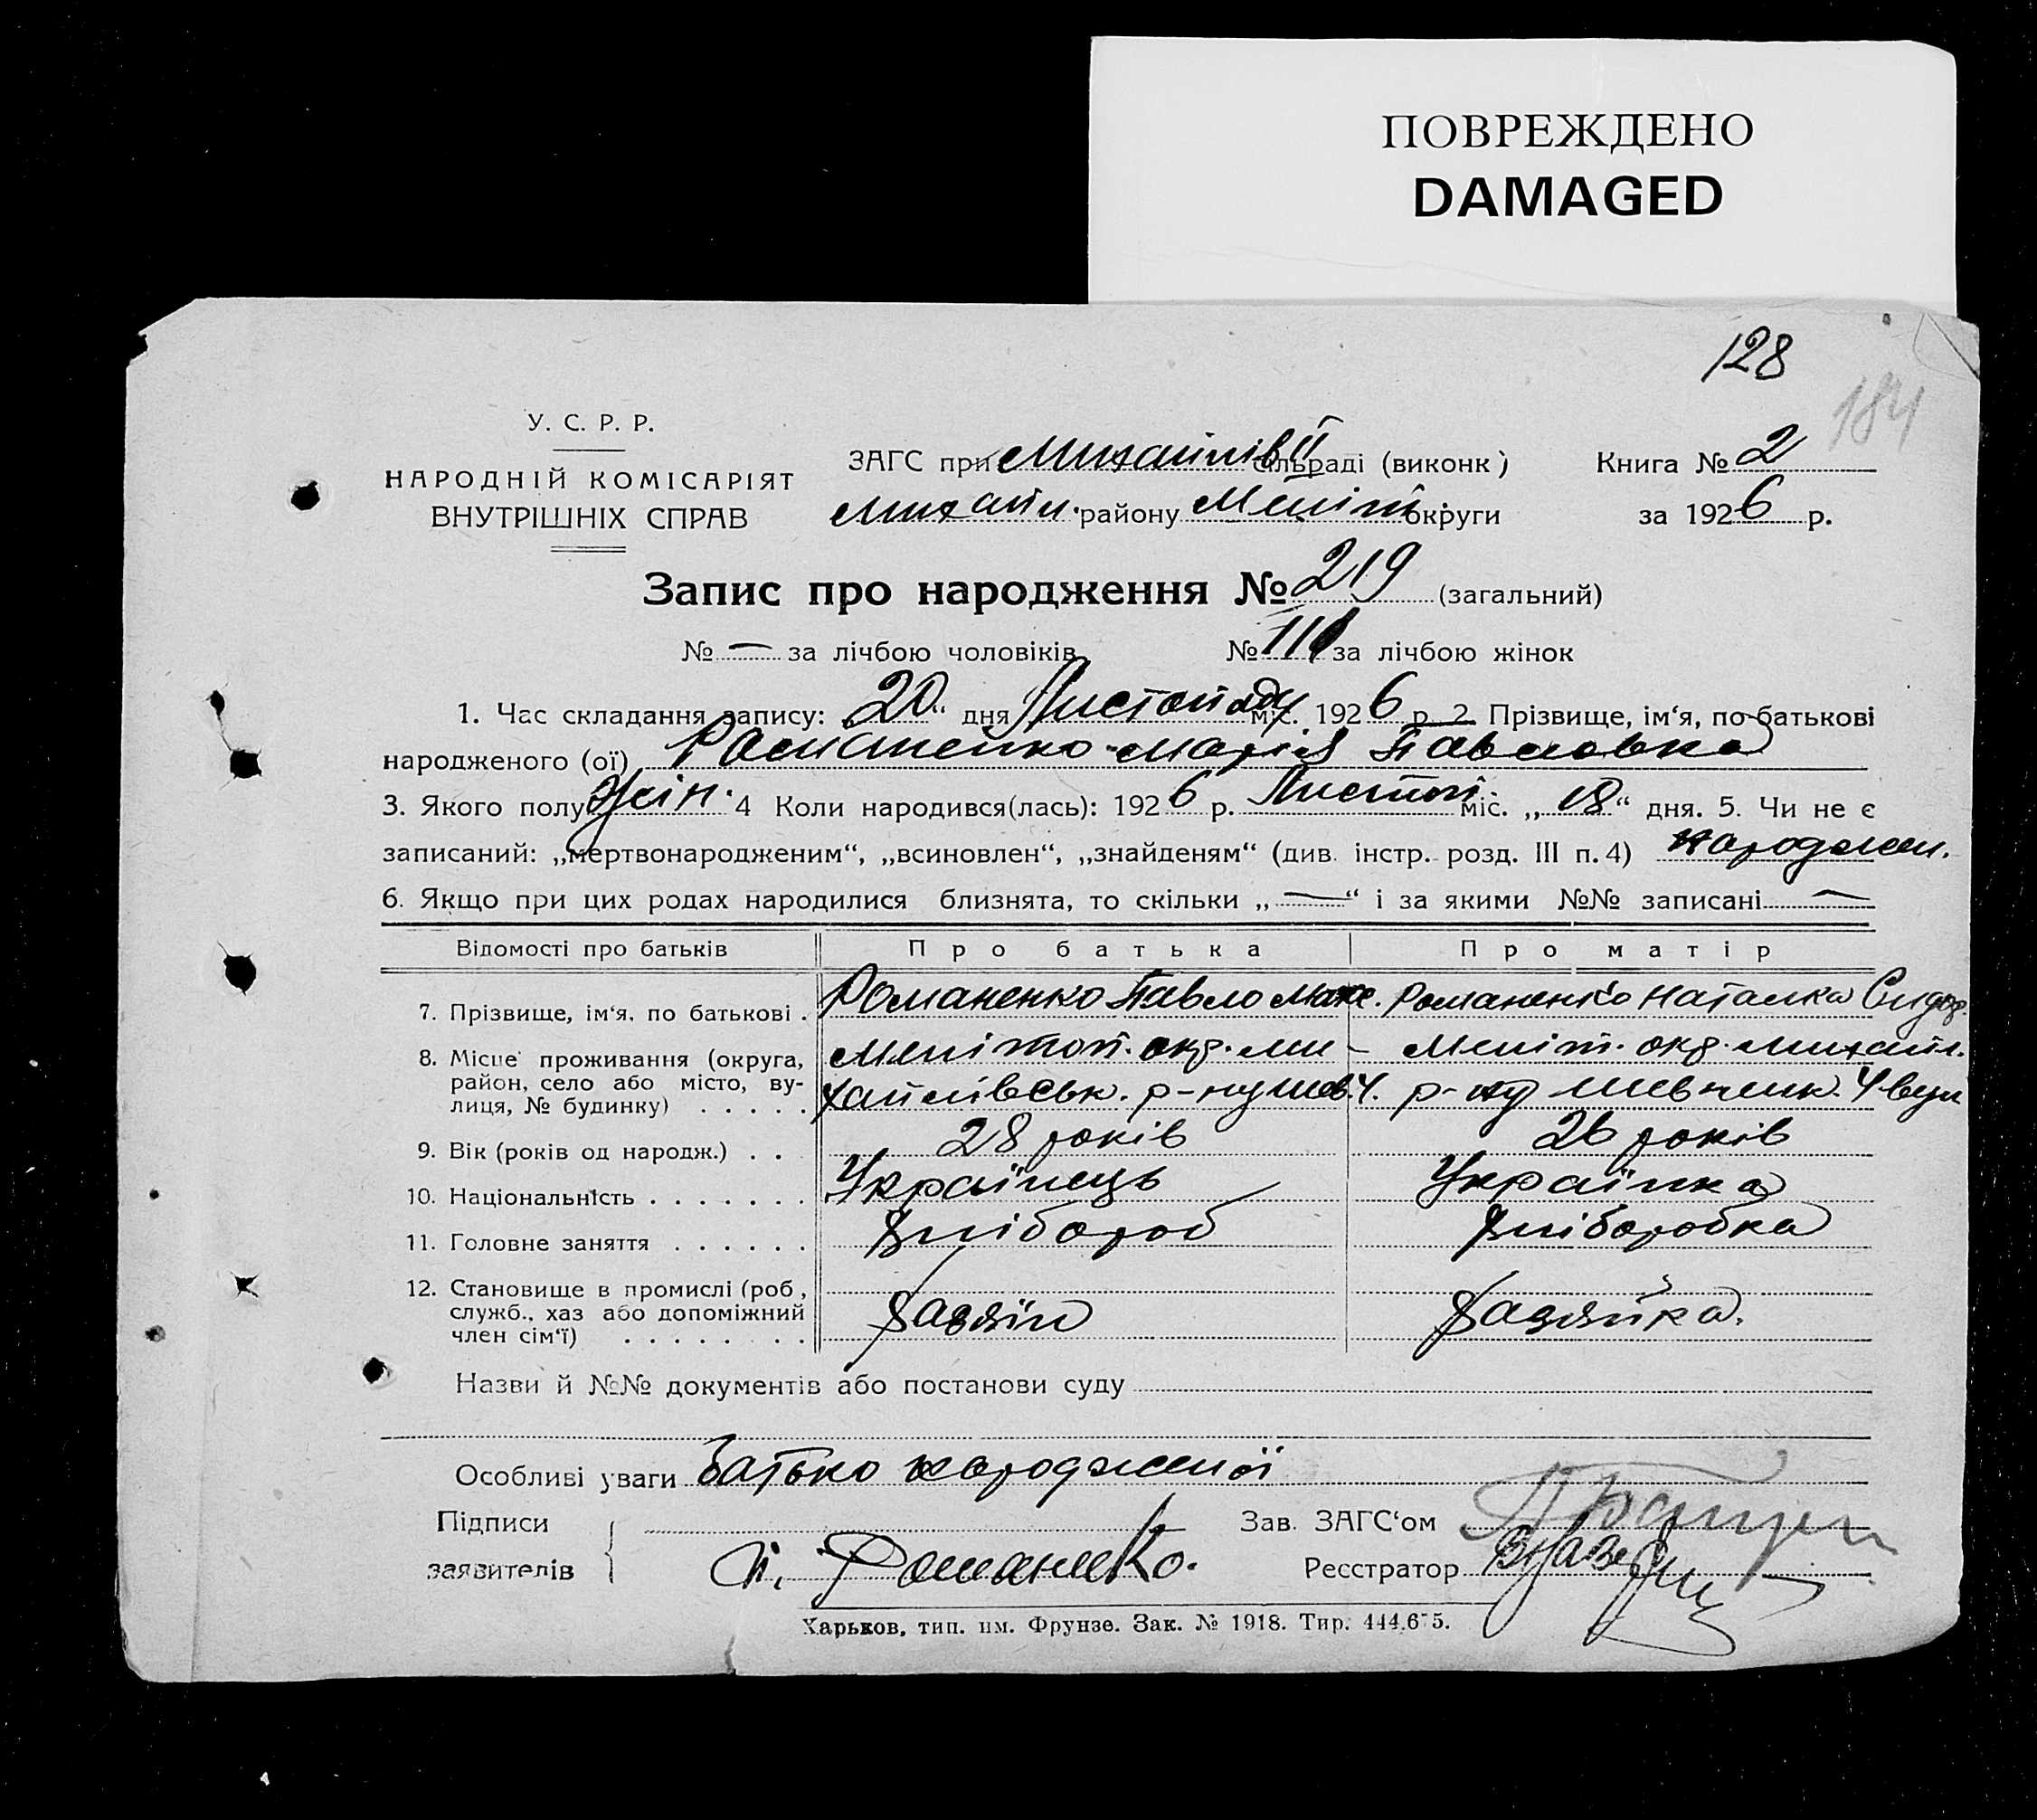 ПОВРЕЖДЕНО
DAMAGED
128
184
У. С. Р. Р.
НАРОДНІЙ КОМІСАРІЯТ
ВНУТРІШНІХ СПРАВ
ЗАГС при Михайлів II сільраді (виконк) Книга № 2
Михайл. району Меліт. округи за 1926 р.
Запис про народження № 219 (загальний)
№ — за лічбою чоловіків № за лічбою жінок
1. Час складання запису: „20“ дня Листопаду міс. 1926 р. 2. Прізвище, ім‘я, по-батькові
народженого (ої) Романенко Марія Павловна
3. Якого полу жін. 4 Коли народився(лась): 1926 р. Листоп. міс. „18“ дня. 5. Чи не є
записаний: „мертвонародженим“, „всиновлен“, „знайденям“ (див. інстр. розд. III п. 4) народжен.
6. Якщо при цих родах народилися близнята, то скільки „—“ і за якими №№ записані —
Відомості про батьків Про батька Про матір
7. Прізвище, ім‘я, по батькові . Романенко Павло Макс. Романенко Наталка Сидор.
8. Місце проживання (округа, Мелітоп. окр. Ми- Меліт. окр. Михайл.
район, село або місто, ву- хайлівськ. р-ну Шев. 4. р-ну Шевченк. 4 вул
лиця, № будинку) . . . . .
9. Вік (років од народж.) . . 28 років 26 років
10. Національність . . . . . . . Українець Українка
11. Головне заняття . . . . . . Хлібороб Хліборобка
12. Становище в промислі (роб.,
служб., хаз або допоміжний Хазяїн Хазяйка.
член сім‘ї) . . . . . . . .
Назви й №№ документів або постанови суду
Особливі уваги Батько народженої
Підписи Зав. ЗАГС‘ом
заявителів П. Романенко. Реєстратор
Харьков, тип. им. Фрунзе. Зак. № 1918. Тир. 444.675.